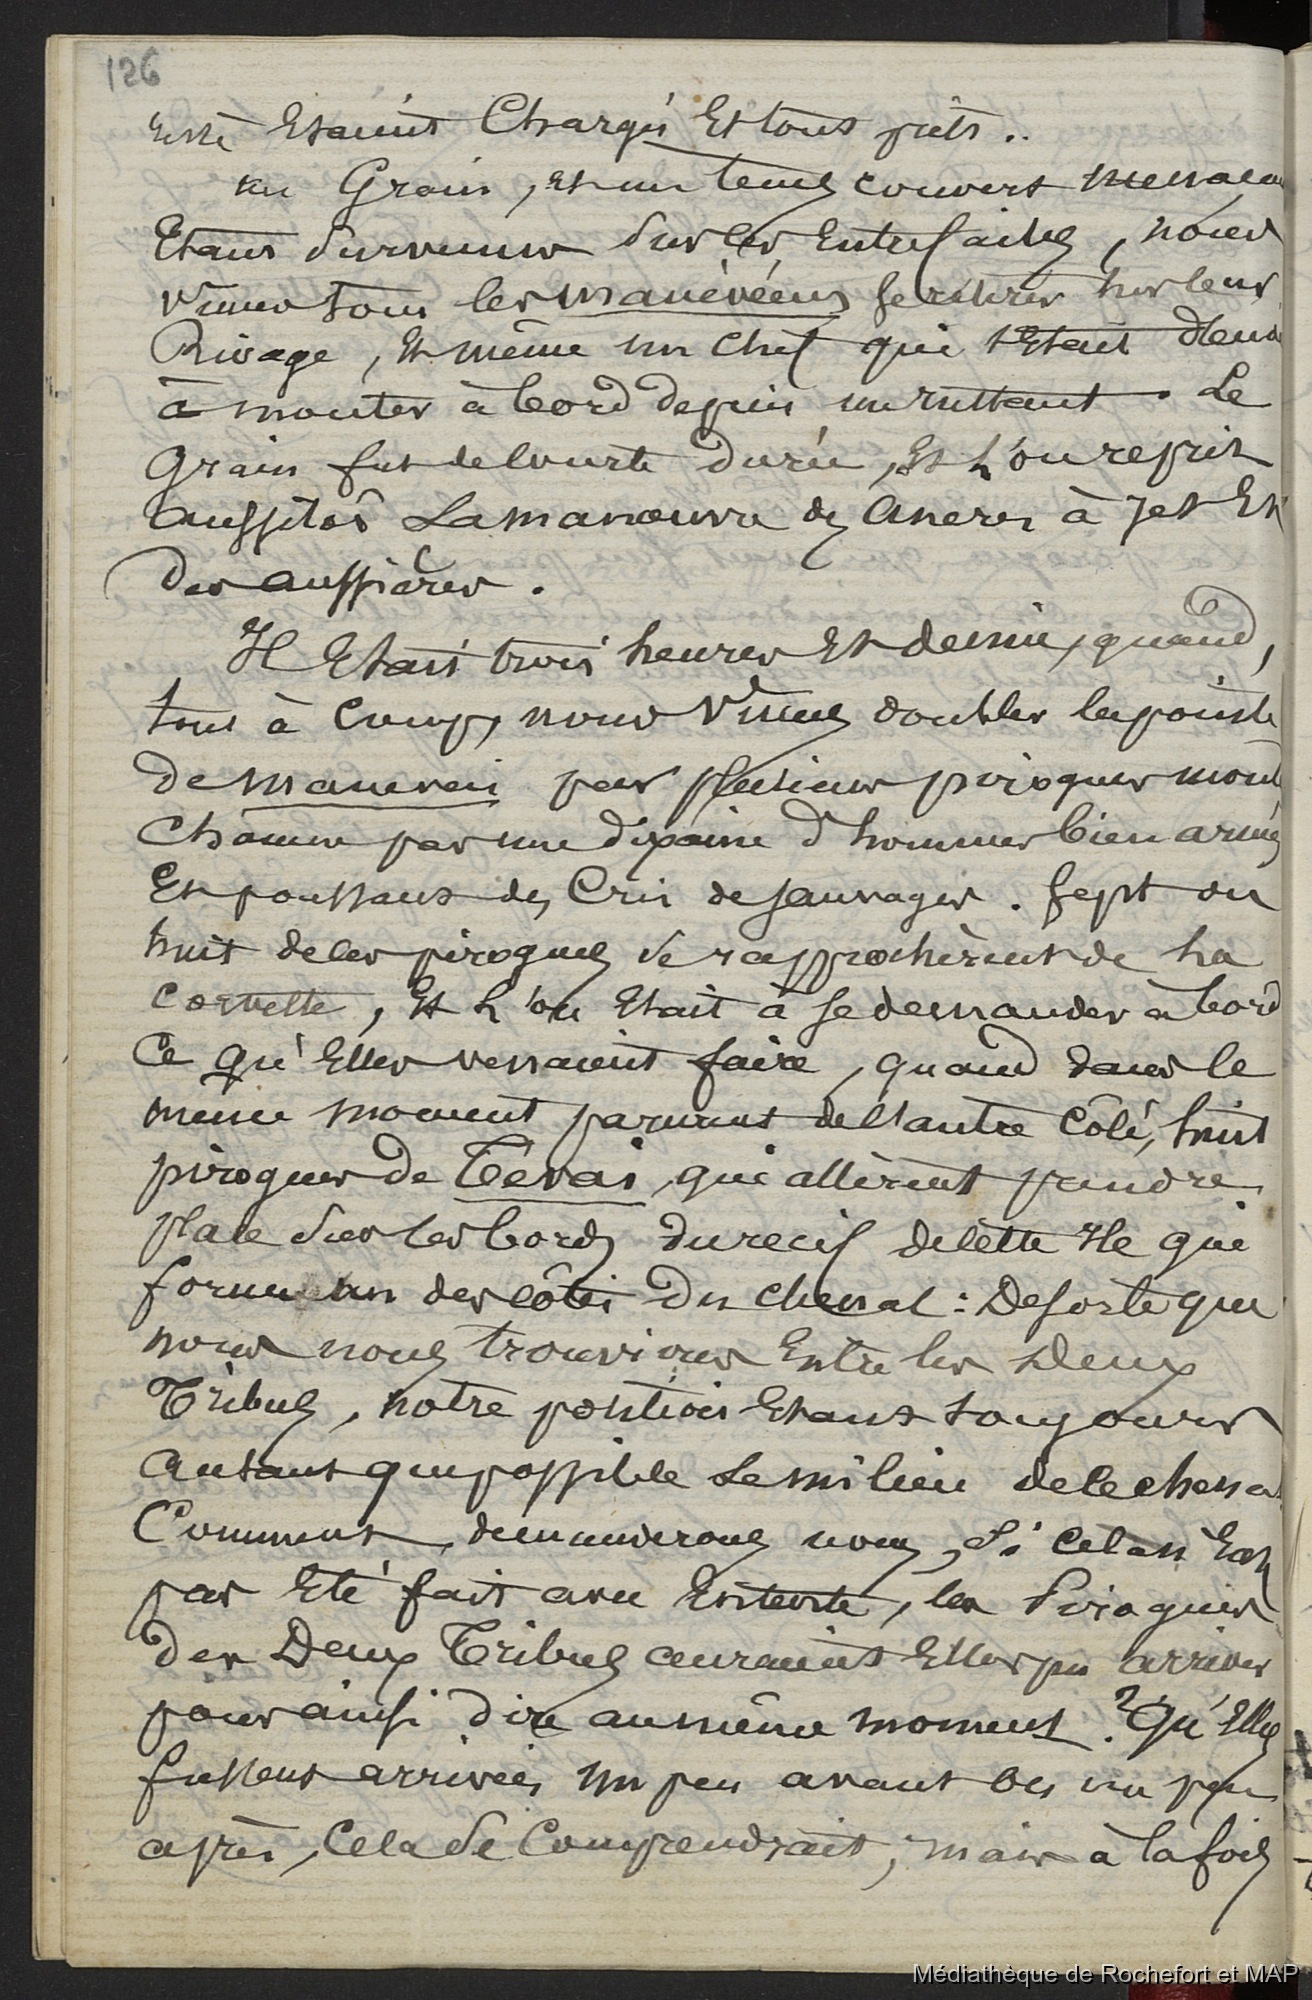 126
Etaient Chargés Et tous prêts ..
un Grain, Et un temps couvert menaçan
Etant survenus sur ces Entrefaites, nous
vimes tous les manévéens se retirer sur leur
Rivage, Et même un chef qui s'Etait
à monter à bord depuis un instant. Le
grain fut de courte durée, Et l'on reprit
aussitôt La manœuvre des Ancres à jet Et
des aussières.
Il Etait trois heures Et demie, quand,
tout à coup, nous vimes doubler la pointe
de manevai par plusieurs pirogues mont
Chacune par une dixaine d'hommes bien armés
Et poussant des Cris de sauvages. Sept ou
huit de ces pirogues se rapprochèrent de la
Corvette, Et l'on Etait à se demander à bord
Ce qu'Elles venaient faire, quand dans le
même moment parurent de l'autre Côté, huit
pirogues de Tévai, qui allèrent prendre
place sur les bords du recif de cette Ile qui
forme un des côtés du chenal : De sorte que
nous nous trouvions Entre les Deux
Tribus, notre position Etant toujours
Autant que possible Le milieu de ce chenal
Comment, demanderons nous, Si cela n'Eut
pas Eté fait avec Entente, les Pirogues
des Deux Tribus auraient Elles pu arriver
pour ainsi dire au même moment ? Qu'Elles
fussent arrivées un peu avant ou un peu
après, Cela se Comprendrait ; mais à la fois
Médiathèque de Rochefort et MAP